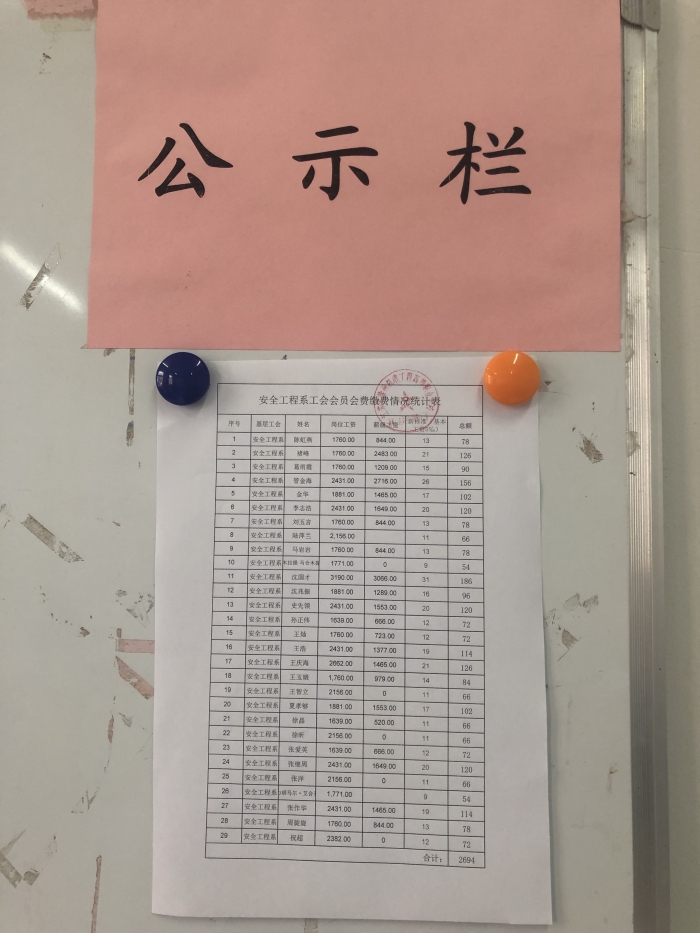 公示栏
安全工程系工会会员会费缴费情况统计表
序号 基层工会 姓名 岗位工资 总额
1 安全工程系 陈虹燕 1760.00 844.00 13 78
2 安全工程系 褚峰 1760.00 2483.00 21 126
3 安全工程系 葛雨霞 1760.00 1209.00 15 90
4 安全工程系 管金海 2431.00 2716.00 26 156
5 安全工程系 金华 1881.00 1465.00 17 102
6 安全工程系 李志浩 2431.00 1649.00 20 120
7 安全工程系 刘五吉 1760.00 844.00 13 78
8 安全工程系 陆萍兰 2,156.00 11 66
9 安全工程系 马岩岩 1760.00 844.00 13 78
10 安全工程系 1771.00 0 9 54
11 安全工程系 沈国才 3190.00 3066.00 31 186
12 安全工程系 沈兆振 1881.00 1289.00 16 96
13 安全工程系 史先锁 2431.00 1553.00 20 120
14 安全工程系 孙正伟 1639.00 666.00 12 72
15 安全工程系 王灿 1760.00 723.00 12 72
16 安全工程系 王浩 2431.00 1377.00 19 114
17 安全工程系 王庆海 2662.00 1465.00 21 126
18 安全工程系 王玉娥 1,760.00 979.00 14 84
19 安全工程系 王智立 2156.00 0 11 66
20 安全工程系 夏孝够 1881.00 1553.00 17 102
21 安全工程系 徐晶 1639.00 520.00 11 66
22 安全工程系 徐昕 2156.00 0 11 66
23 安全工程系 张爱英 1639.00 666.00 12 72
24 安全工程系 张继周 2431.00 1649.00 20 120
25 安全工程系 张洋 2156.00 0 11 66
26 安全工程系 1,771.00 9 54
27 安全工程系 张作华 2431.00 1465.00 19 114
28 安全工程系 周璇旋 1760.00 844.00 13 78
29 安全工程系 祝超 2382.00 0 12 72
合计: 2694